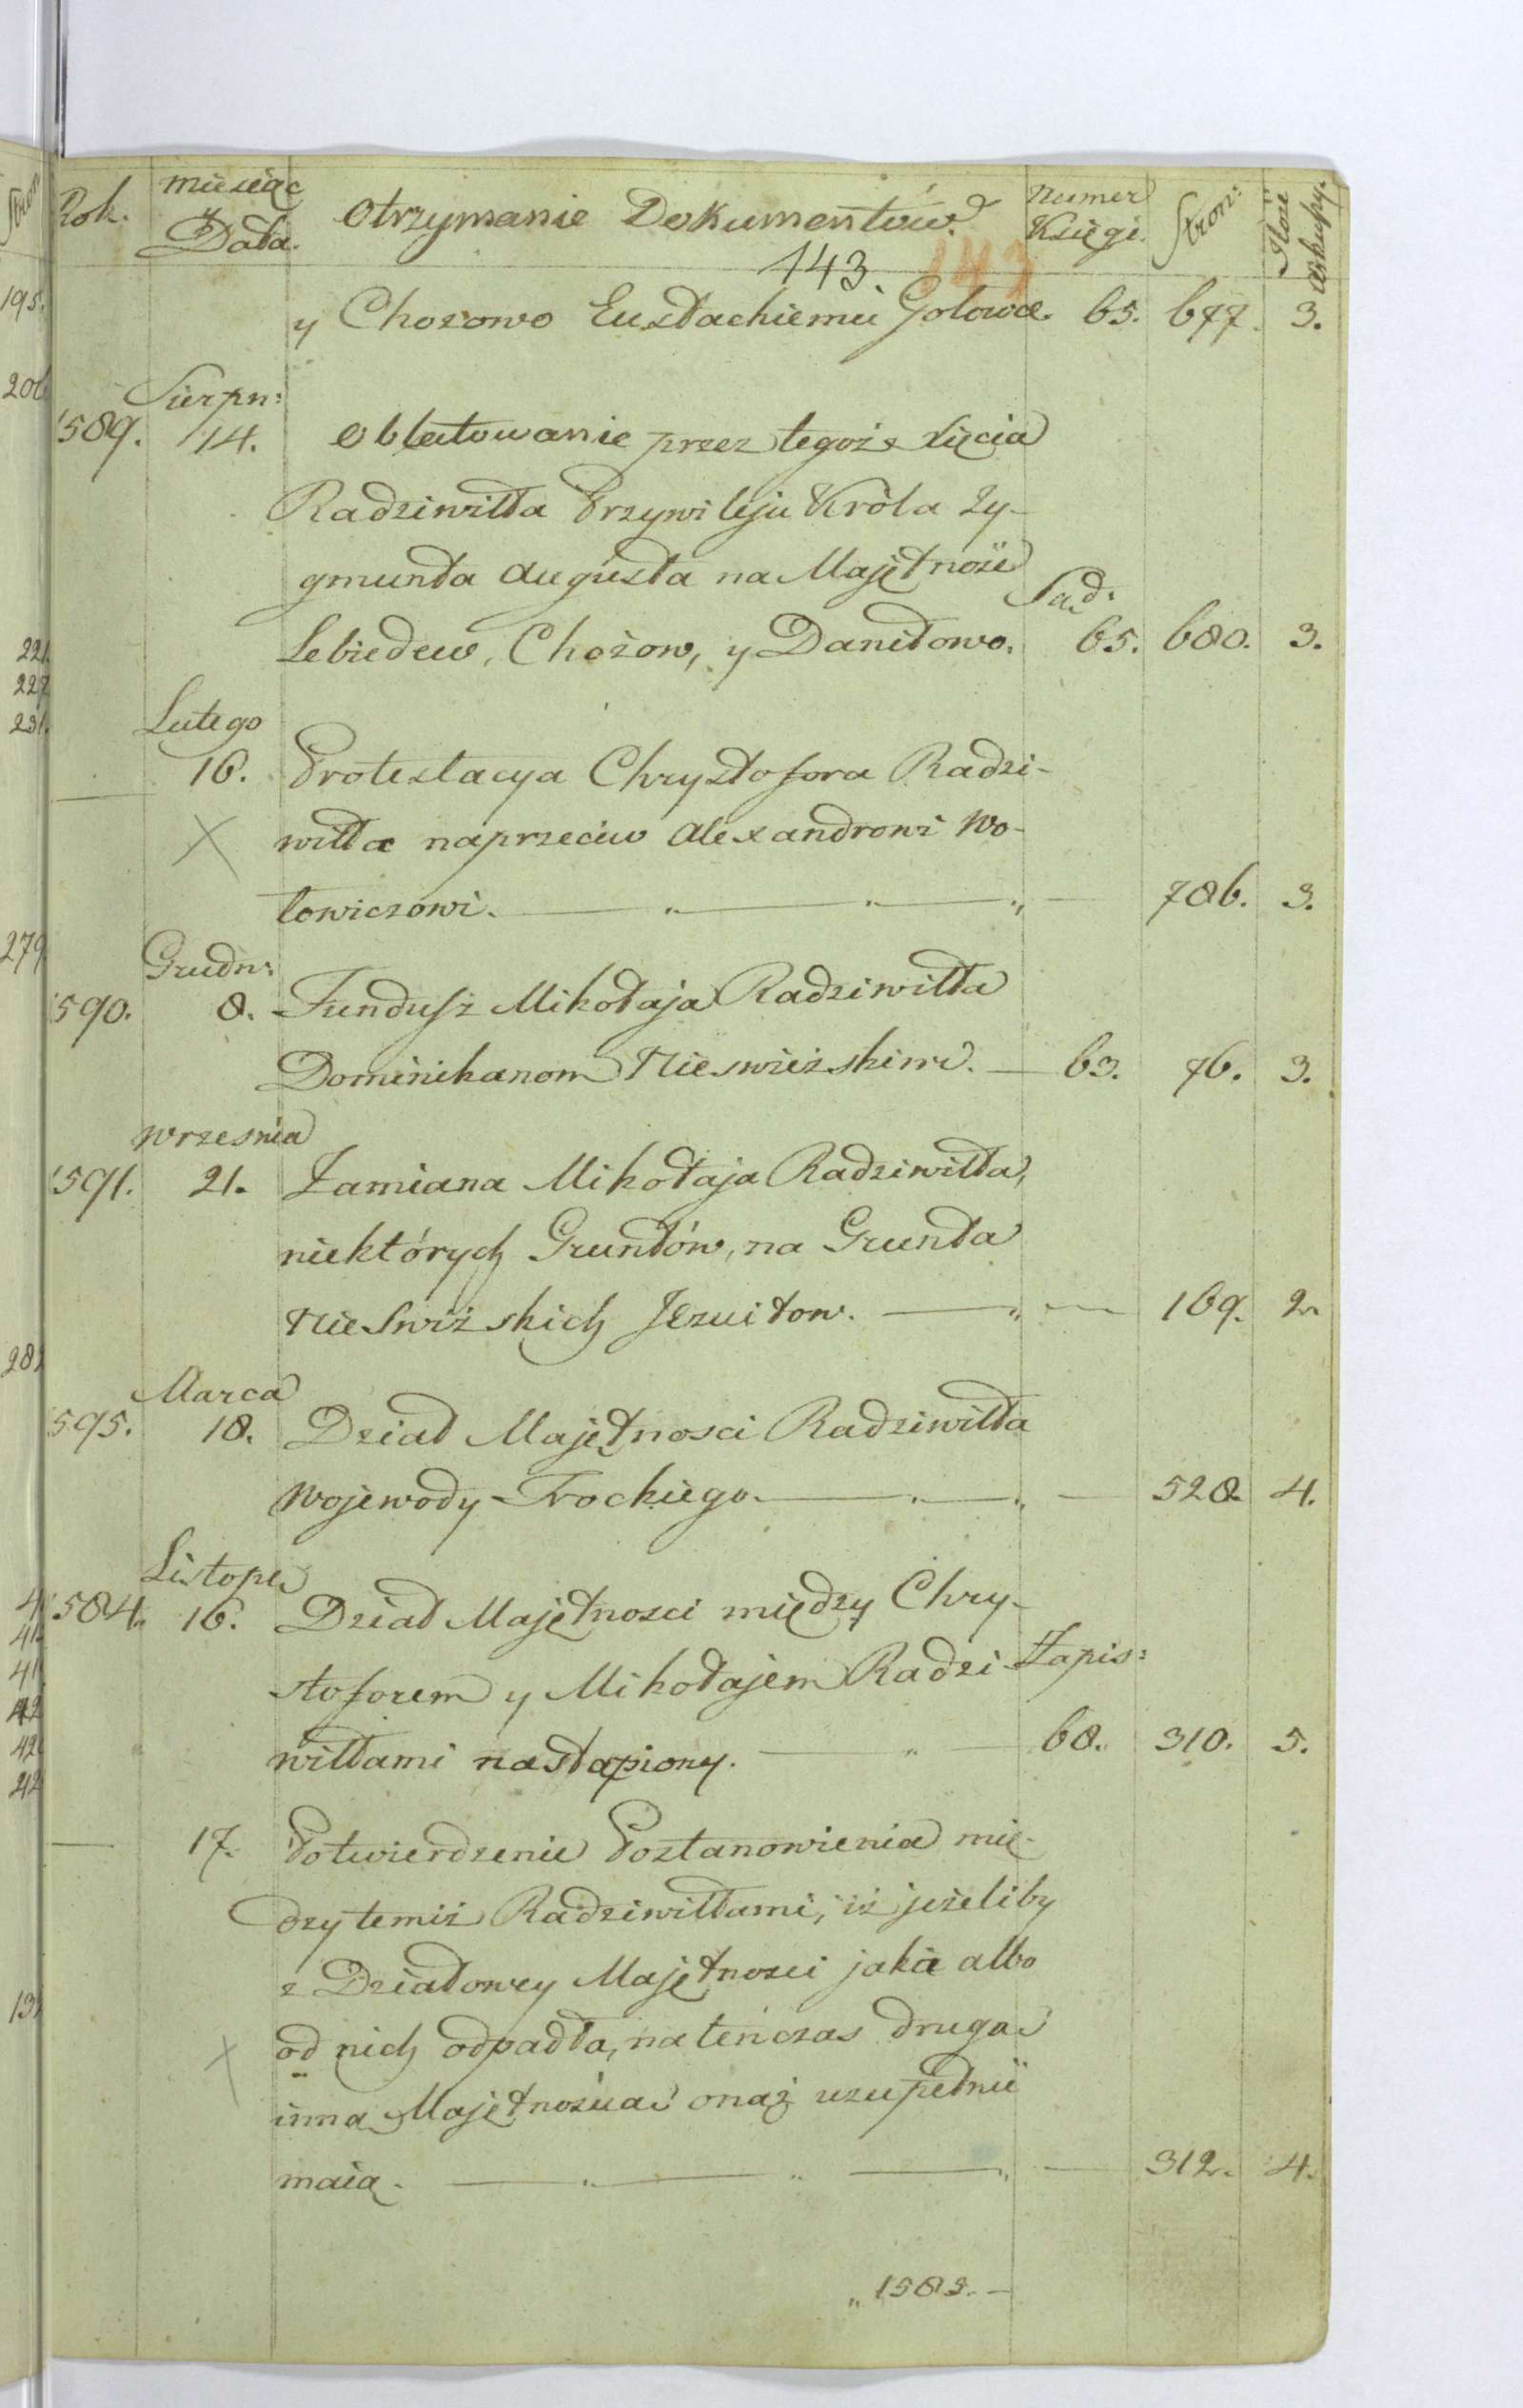 Rok. miesiąc y Data. Otrzymanie Dokumentów. Numer Księgi. Stron:
143. 143
y Chozowo Eustachiemu Holowce. 65. 677. 3.
Sierpn:
1589. 14. Oblatowanie przez tegoż Xięcia
Radziwiłła Przywileju Króla Zy-
gmunta Augusta na Majętnośc
Sąd:
Lebiedew, Chożow, y Daniłowo. 65. 680. 3.
Lutego
16. Protestacya Chrysztofora Radzi-
wiłła naprzeciw Alexandrowi Wo-
łowiczowi. 786. 3.
Grudn:
1590. 8. Fundusz Mikołaja Radziwiłła
Dominikanom Nieswieżskim. 63. 76. 3.
Wrzesnia
1591. 21. Zamiana Mikołaja Radziwiłła,
niektórych Gruntów, na Grunta
Nieswiżskich Jezuitow. 169. 2.
Marca
1595. 18. Dział Majętnosci Radziwiłła
Wojewody Trockiego. 528. 4.
Listopa
1584. 16. Dział Majętnosci między Chry-
stoforem y Mikołajem Radzi Zapis:
wiłłami nastąpiony. 68. 310. 5.
17. Potwierdzenie Postanowienia mię-
dzy temiż Radziwiłłami, iż jeżeliby
z Działowey Majętnosci jaka albo
od nich odpadła, natenczas drugą
inną Majętnością onąż uzupełnić
maią. 312. 4.
1585.